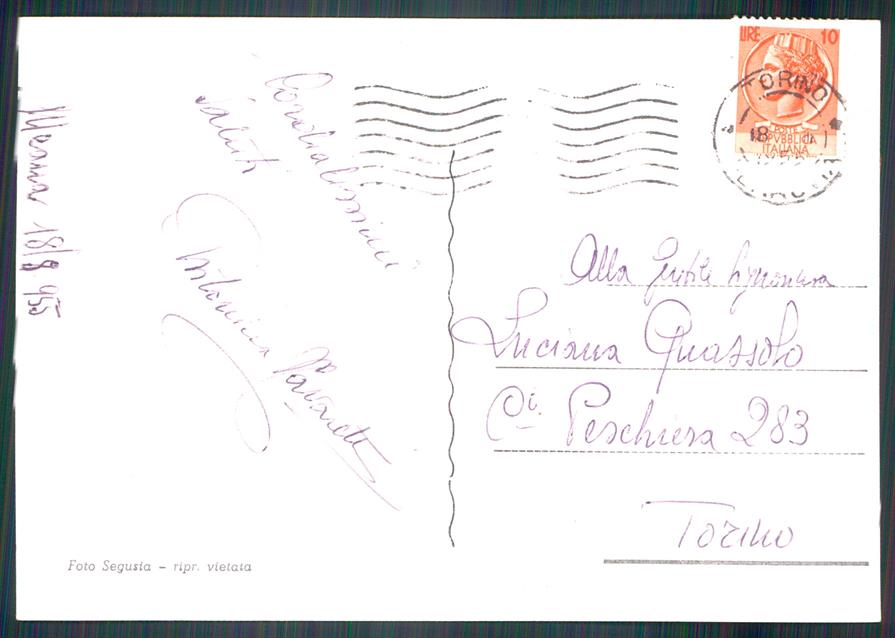 18/8 955
Cordialissimi
saluti
LIRE 10
POSTE
REPVBBLICA
ITALIANA
TORINO
18
Alla Gentile Signorina
Luciana Quassolo
Ci. Peschiera 283
Torino
Foto Segusia - ripr. vietata